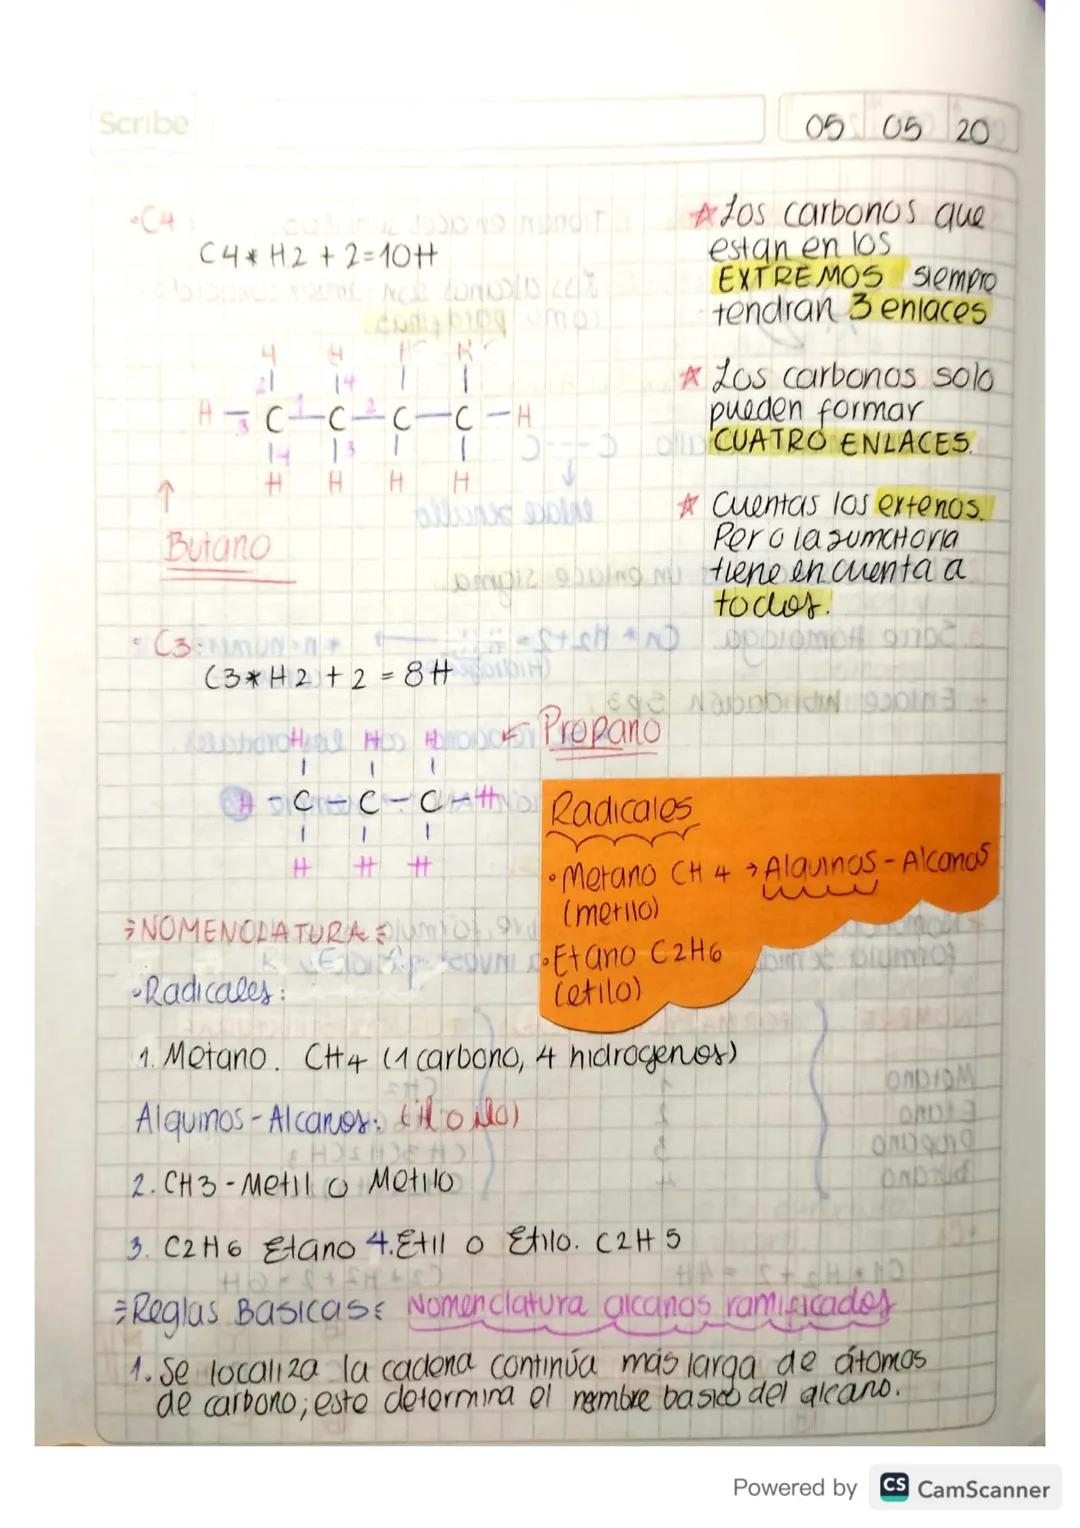 Scribe
05 05 20
•C4:
C4*H2+2=10H
H H H H
2 14
H-3C1-C2-C-C-H
14 13
H H H H
↑
Butano
☆Los carbonos que
estan en los
EXTREMOS siempre
tendran 3 enlaces
☆ Los carbonos solo
pueden formar
CUATRO ENLACES.
☆ Cuentas los extenos.
Pero la sumatoria
tiene en cuenta a
todos.
•C3:
C3*H2+2=8H
Propano
H H H
H-C-C-C-H
H H H
Radicales
•Metano CH4→Alquinos-Alcanos
(metilo)
•Etano C2H6
(etilo)
NOMENCLATURA
•Radicales:
1. Metano. CH4 (1 carbono, 4 hidrogenos)
Alquinos-Alcanos: (il o ilo)
2. CH3-Metil o Metilo
3. C2H6 Etano 4.Etil o Etilo. C2H5
Reglas Basicas: Nomenclatura alcanos ramificados
1. Se localiza la cadena continúa más larga de átomos
de carbono; este determina el nombre basico del alcano.
Powered by CS CamScanner